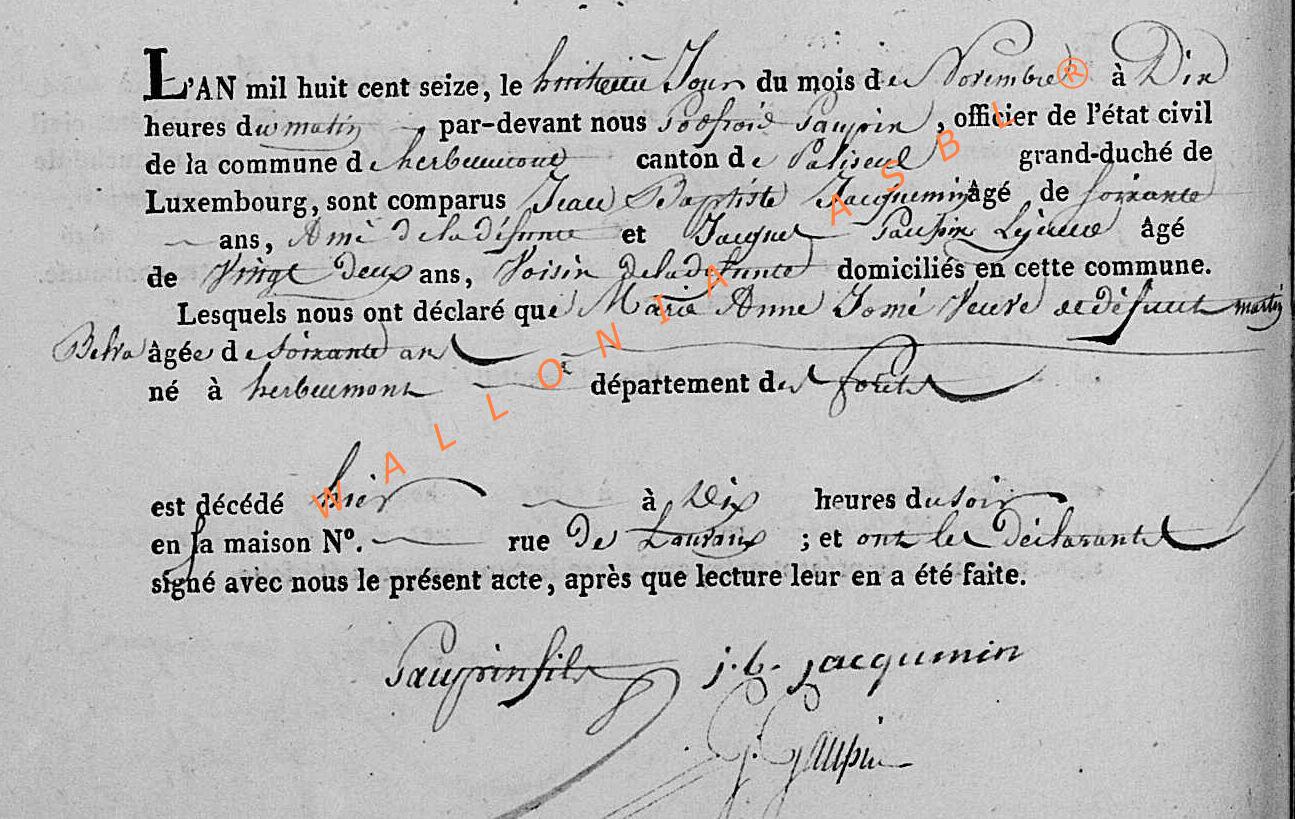 L'AN mil huit cent seize, le huitieme Jour du mois de Novembre à Dix
heures du matin, par-devant nous Godfroid Gaupin, officier de l'état civil
de la commune d'herbeumont canton de Paliseul grand-duché de
Luxembourg, sont comparus Jean Baptiste Jacquemin âgé de soixante
ans, Ami de la défunte et Jacque Gaupin Lejeune âgé
de Vingt Deux ans, Voisin de la defunte domiciliés en cette commune.
Lesquels nous ont déclaré que Marie Anne Jomé Veuve de défunt martin
Belva âgée de soixante an
né à herbeumont département des forêts
est décédé hier à Dix heures du soir
en sa maison N°. rue De ; et ont les Déclarants
signé avec nous le présent acte, après que lecture leur en a été faite.
Gaupin fils j. b. jacqumin
g. Gaupin
WALLONIA ASBL ®